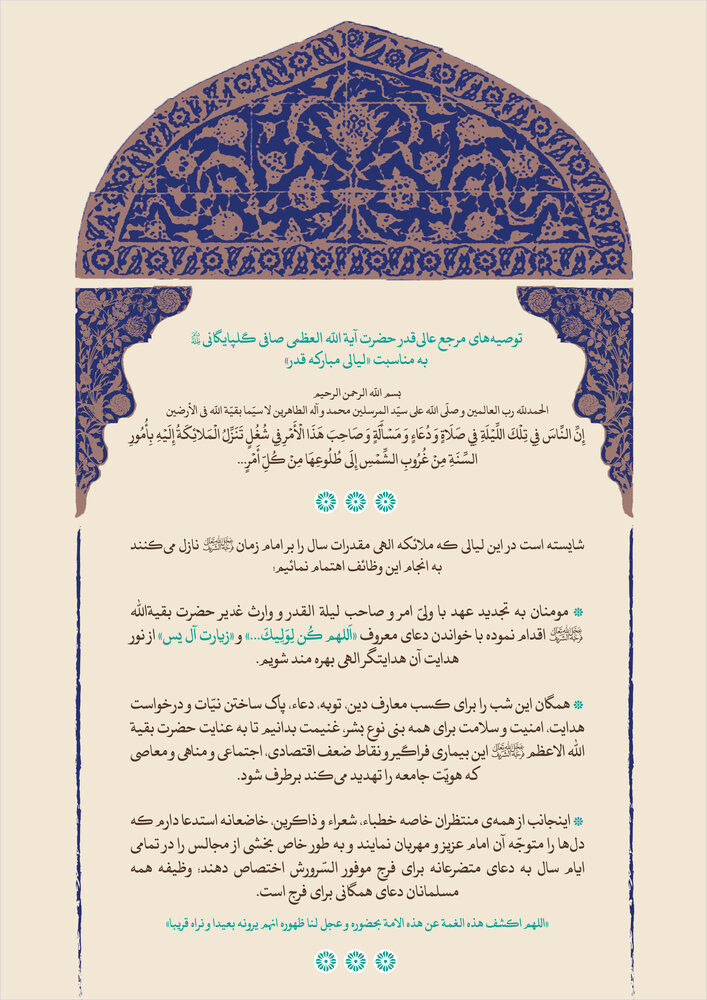 توصیه‌های مرجع عالی‌قدر حضرت آیة الله العظمی صافی گلپایگانی مدّظلّه
به مناسبت «لیالی مبارکه قدر»
بسم الله الرحمن الرحیم
الحمدلله رب العالمین و صلّی الله علی سیّد المرسلین محمد و آله الطاهرین لا سیّما بقیّة الله فی الأرضین
إِنَّ النَّاسَ فِي تِلْكَ اللَّيْلَةِ فِي صَلَاةٍ وَ دُعَاءٍ وَ مَسْأَلَةٍ وَ صَاحِبَ هَذَا الْأَمْرِ فِي شُغُلٍ تَنَزَّلُ الْمَلَائِكَةُ إِلَيْهِ بِأُمُورِ
السَّنَةِ مِنْ غُرُوبِ الشَّمْسِ إِلَى طُلُوعِهَا مِنْ كُلِّ أَمْرٍ...
شایسته است در این لیالی که ملائکه الهی مقدرات سال را بر امام زمان عجل الله تعالی فرجه الشریف نازل می‌کنند
به انجام این وظائف اهتمام نمائیم؛
مومنان به تجدید عهد با ولیّ امر و صاحب لیلة القدر و وارث غدیر حضرت بقیة‌الله
عجل الله تعالی فرجه الشریف اقدام نموده با خواندن دعای معروف «اَللهم کُن لِوَلیِکَ...» و «زیارت آل یس» از نور
هدایت آن هدایتگر الهی بهره مند شویم.
همگان این شب را برای کسب معارف دین، توبه، دعاء، پاک ساختن نیّات و درخواست
هدایت، امنیت و سلامت برای همه بنی نوع بشر، غنیمت بدانیم تا به عنایت حضرت بقیة
الله الاعظم عجل الله تعالی فرجه الشریف این بیماری فراگیر و نقاط ضعف اقتصادی، اجتماعی و مناهی و معاصی
که هویّت جامعه را تهدید می‌کند برطرف شود.
اینجانب از همه‌ی منتظران خاصه خطباء، شعراء و ذاکرین، خاضعانه استدعا دارم که
دل‌ها را متوجّه آن امام عزیز و مهربان نمایند و به طور خاص بخشی از مجالس را در تمامی
ایام سال به دعای متضرعانه برای فرج موفور السّرورش اختصاص دهند؛ وظیفه همه
مسلمانان دعای همگانی برای فرج است.
«اللهم اکشف هذه الغمة عن هذه الامة بحضوره و عجل لنا ظهوره انهم یرونه بعیدا و نراه قریبا»